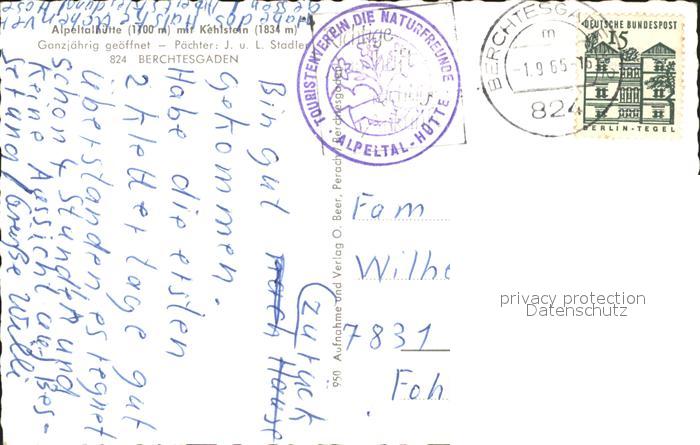 Alpeltalhütte (1100 m) mit Kehlstein (1834 m)
Ganzjährig geöffnet – Pächter: J. u. L. Stadler
824 BERCHTESGADEN
Bin gut nach Hause
(zurück
gekommen.
Habe die ersten
2 Klettertage gut
überstanden es regnet
schon 4 Stund und
keine Aussicht auf Bes-
serung Grüße Willi
TOURISTENVEREIN DIE NATURFREUNDE
· ALPELTAL-HÜTTE ·
950 Aufnahme und Verlag O. Beer, Perach, Berchtesgaden
BERCHTESGADEN
m
-1.9.65-15
824
DEUTSCHE BUNDESPOST
15
BERLIN-TEGEL
Fam
Wilhe
7831
Foh
privacy protection
Datenschutz